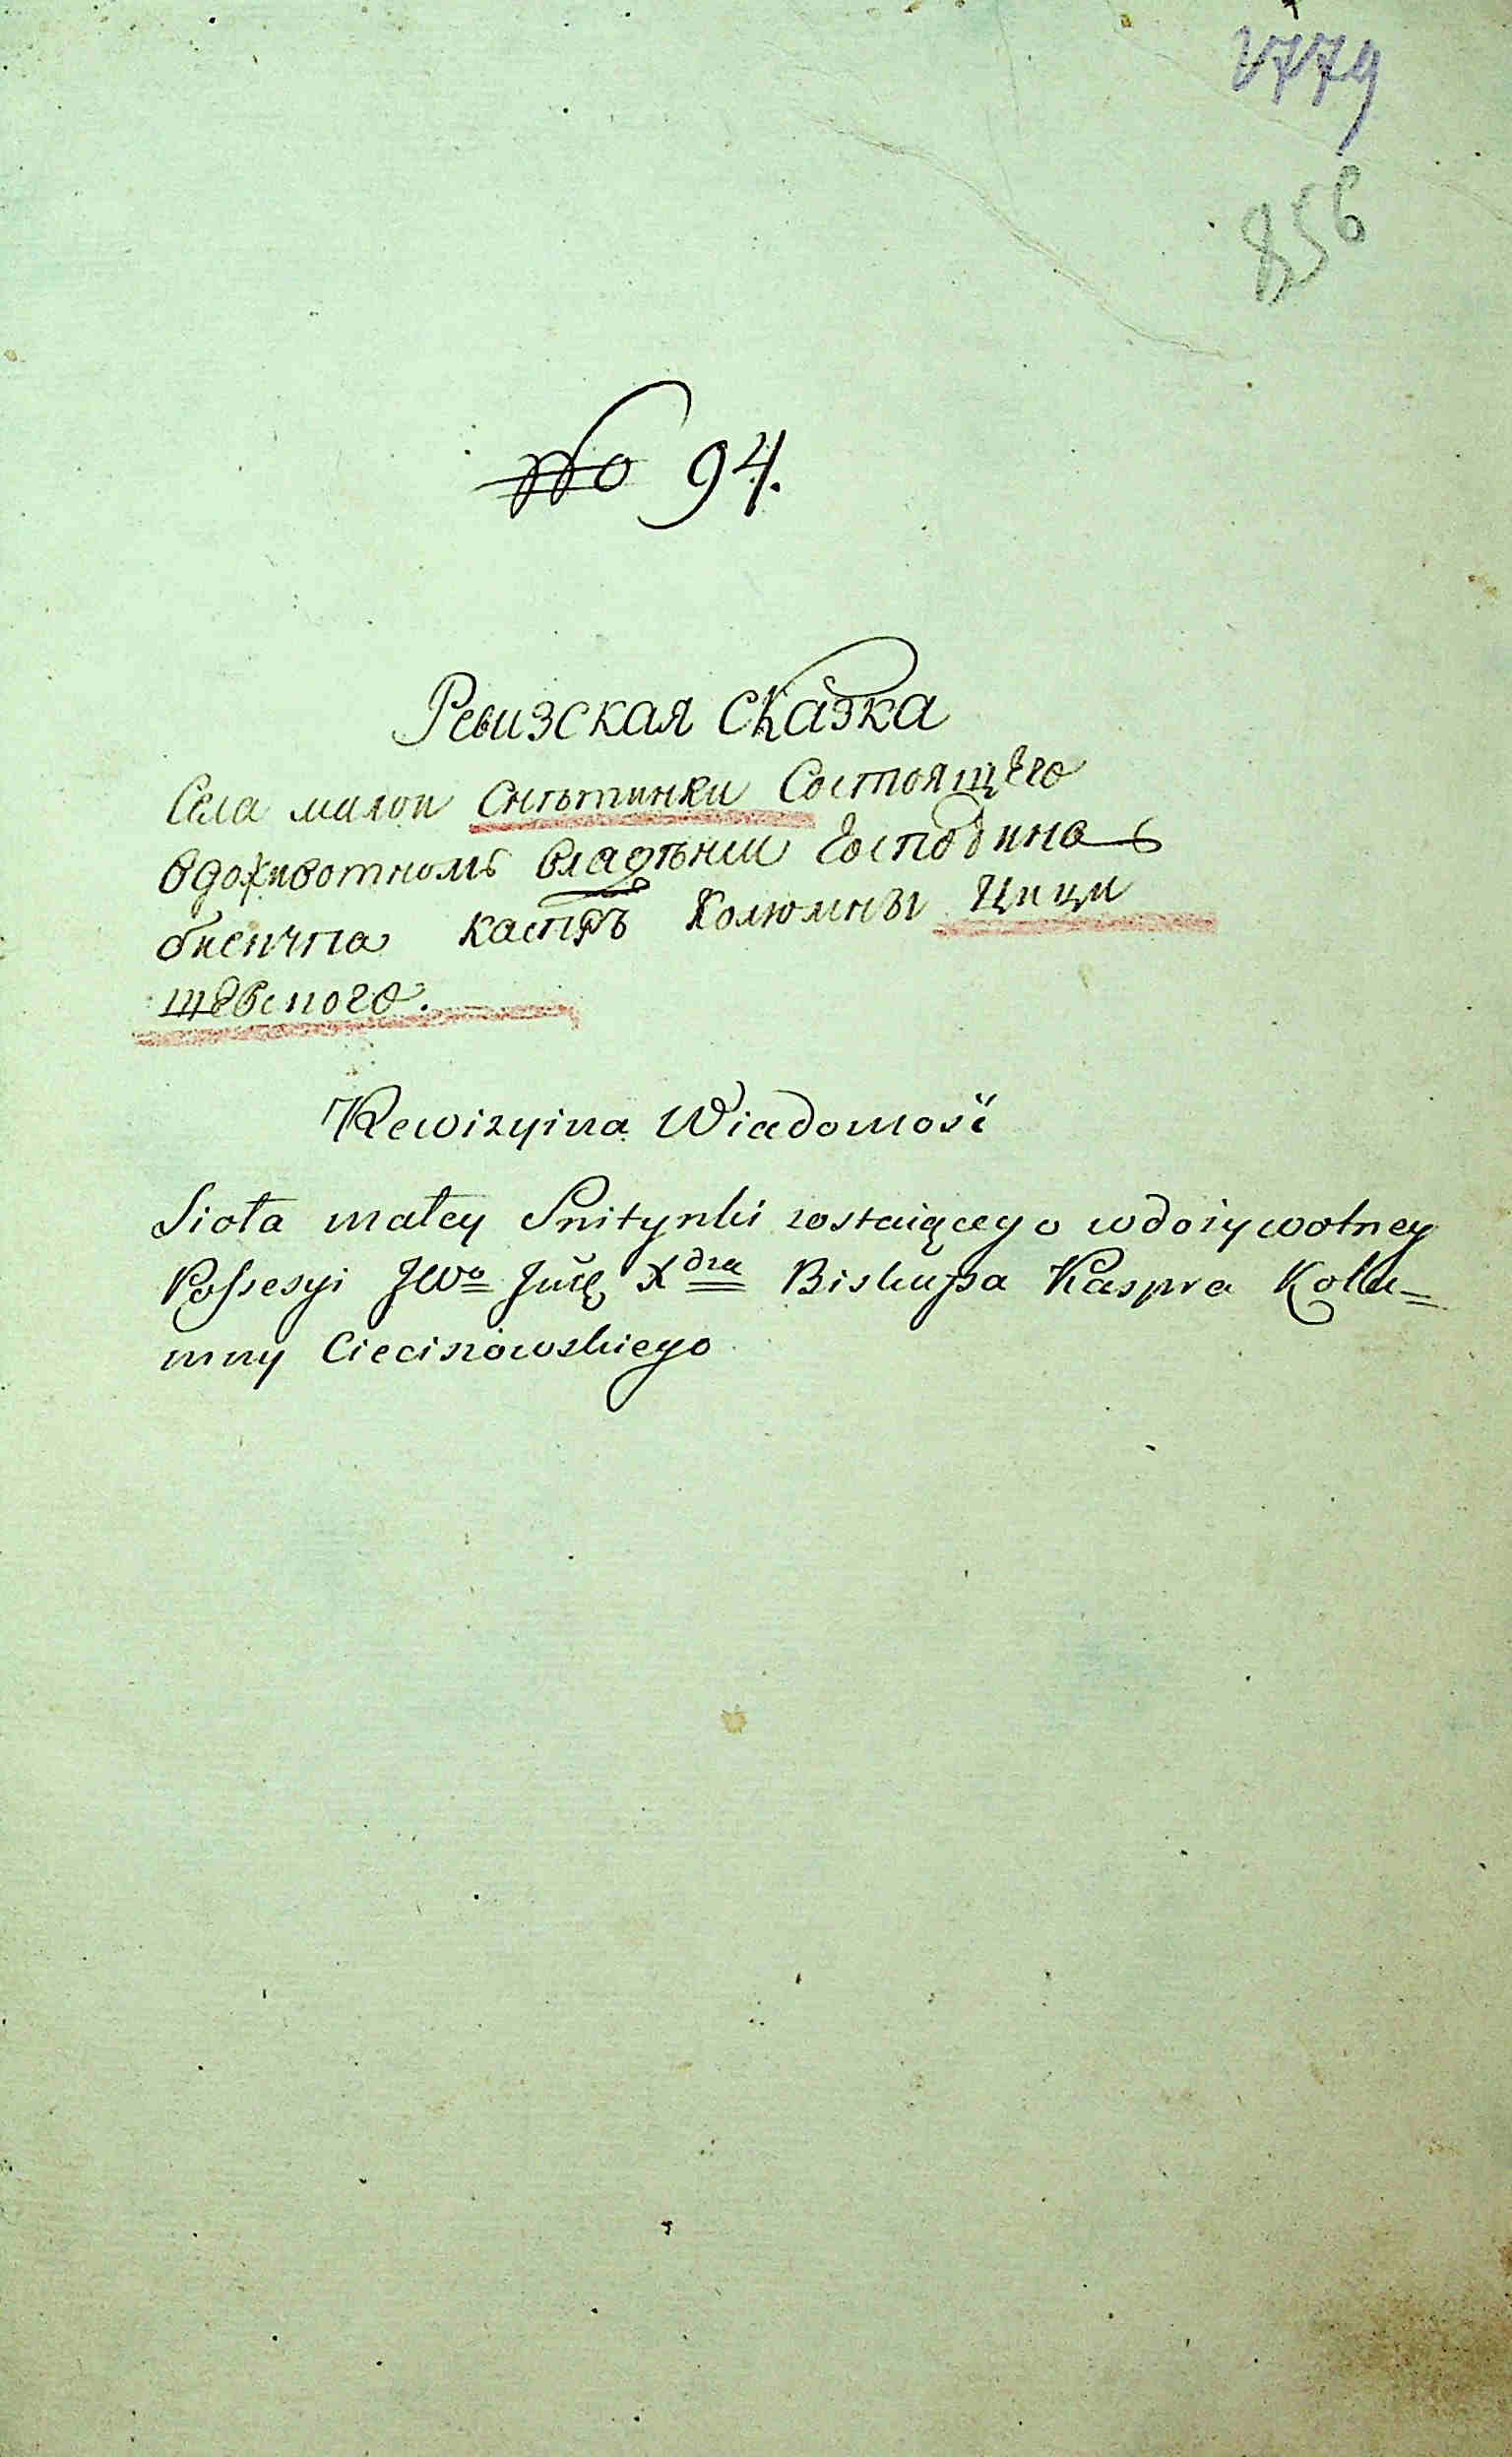 2779
856
No 94.
Ревизская сказка
Села малои Снѣтинки Состоящего
вдоживотномъ владѣнии Господина
бискупа каспръ Колюмны Цици
шевского.
Rewizyina Wiadomość
Sioła małey Snitynki zostaiącego w dożywotney
Possesyi JWo X dza Biskupa Kaspra Kolu=
mny Cieciszowskiego